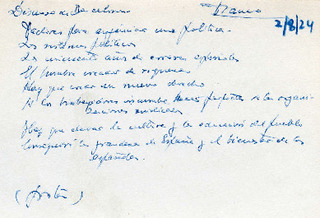 Discurso de Barcelona
Franco
2/8/24
Razones para organizar una política.
Los sistemas políticos
Los cincuenta años de errores españoles
El hombre creador de riquezas
Hay que crear un nuevo derecho
A los trabajadores incumbe hacer perfectas a las organi-
zaciones sindicales
Hay que elevar la cultura y la educación del pueblo
Conseguir la grandeza de España y el bienestar de los
españoles.